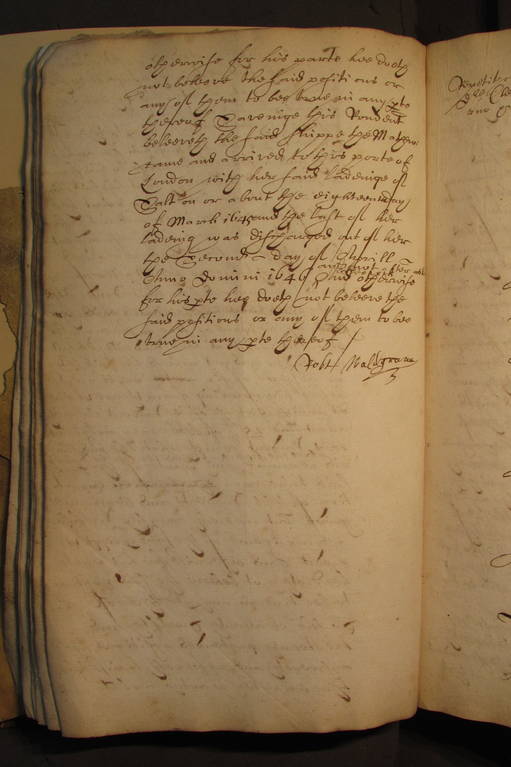 otherwise for his parte hee doeth
not beleeve the said positions or
any of them to bee true in any pte
thereof Saveinge this Rondent
beleeveth the said shippe the Mathew
came and arrived to this porte of
London with her said ladeinge of
Salt on or about the eighteenth day
of March 1645 and the last of her
ladeing was discharged out of her
the Second day of Aprill
Anno Domini 1646 And otherwise
for his pte hee doeth not beleeve the
said positions or any of them to bee
true in any pte thereof
Robt Waldgrave